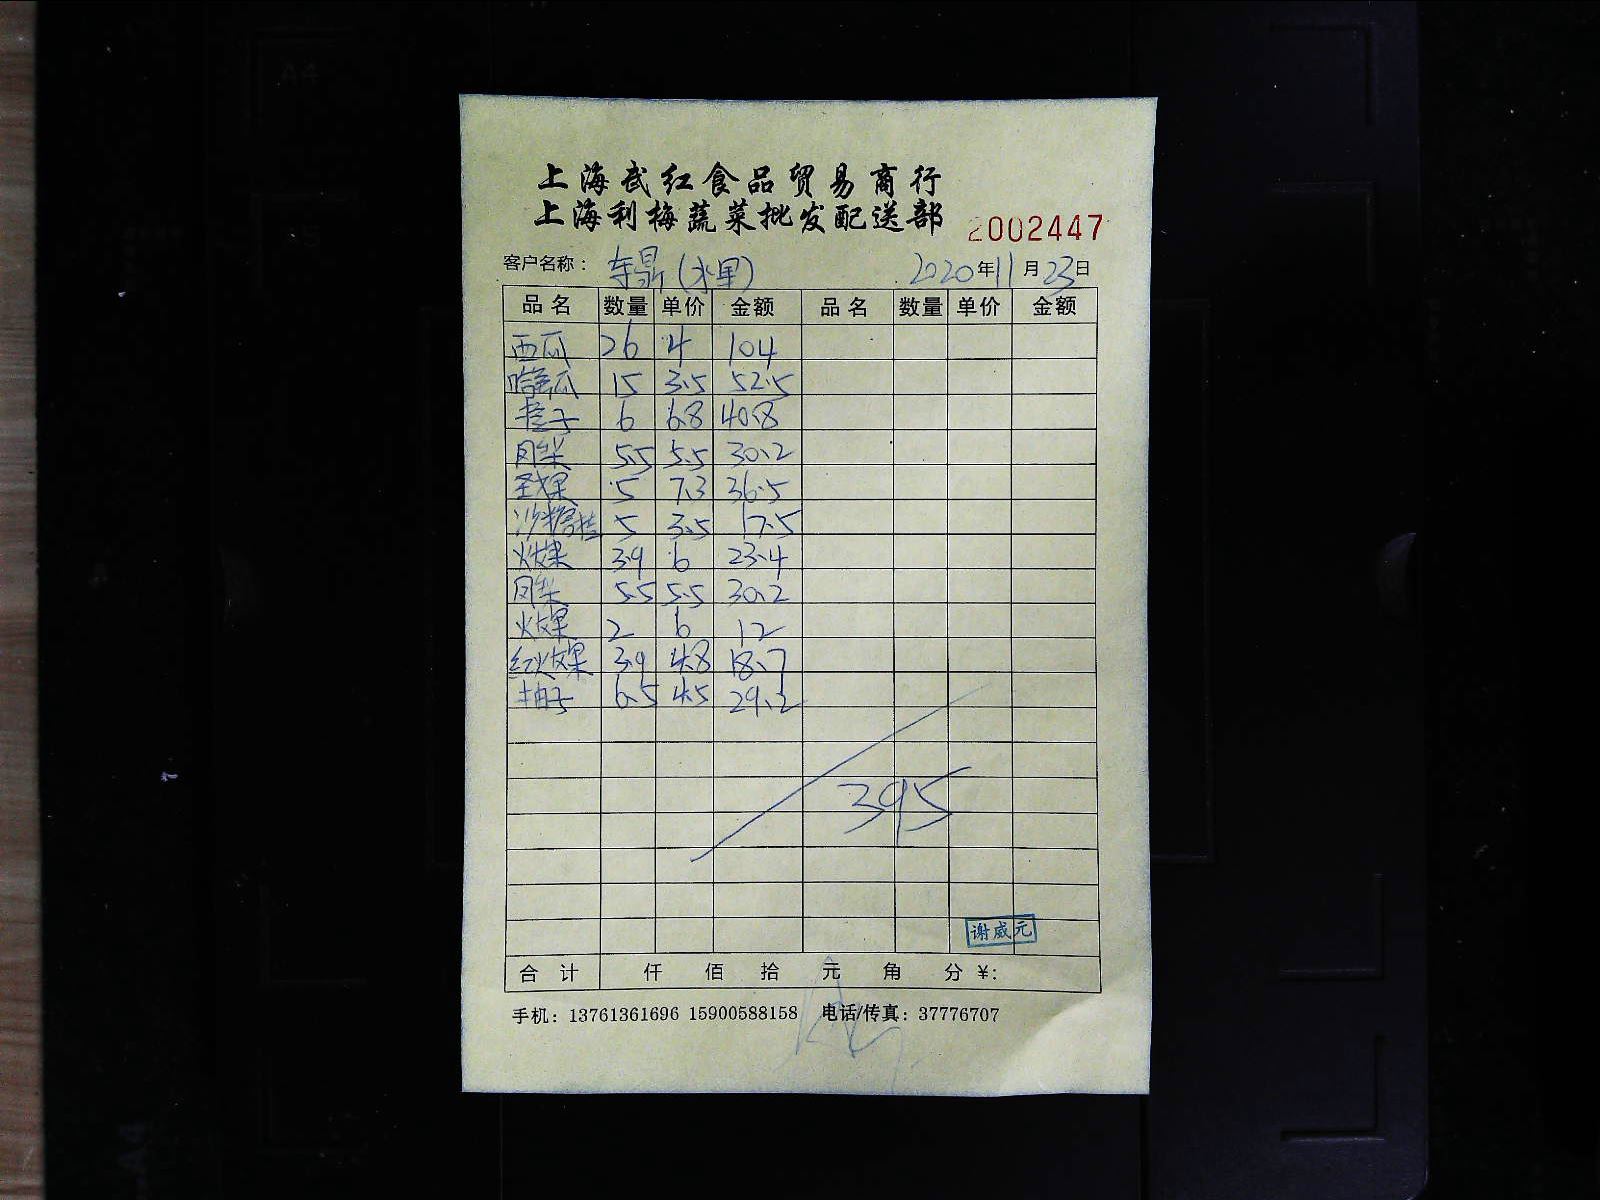 上海武红食品贸易商行
上海利梅蔬菜批发配送部 2002447
客户名称: 东鼎(水果) 2020年11月23日
品名 数量 单价 金额 品名 数量 单价 金额
西瓜 26 4 104
哈密瓜 15 3.5 52.5
橙子 6 6.8 40.8
凤梨 5.5 5.5 30.2
圣女果 5 7.3 36.5
沙糖桔 5 3.5 17.5
火龙果 3.9 6 23.4
凤梨 5.5 5.5 30.2
火龙果 2 6 12
红火龙果 3.9 4.8 18.7
柚子 6.5 4.5 29.2
395
谢威元
合计 仟 佰 拾 元 角 分 ¥:
手机: 13761361696 15900588158 电话/传真: 37776707